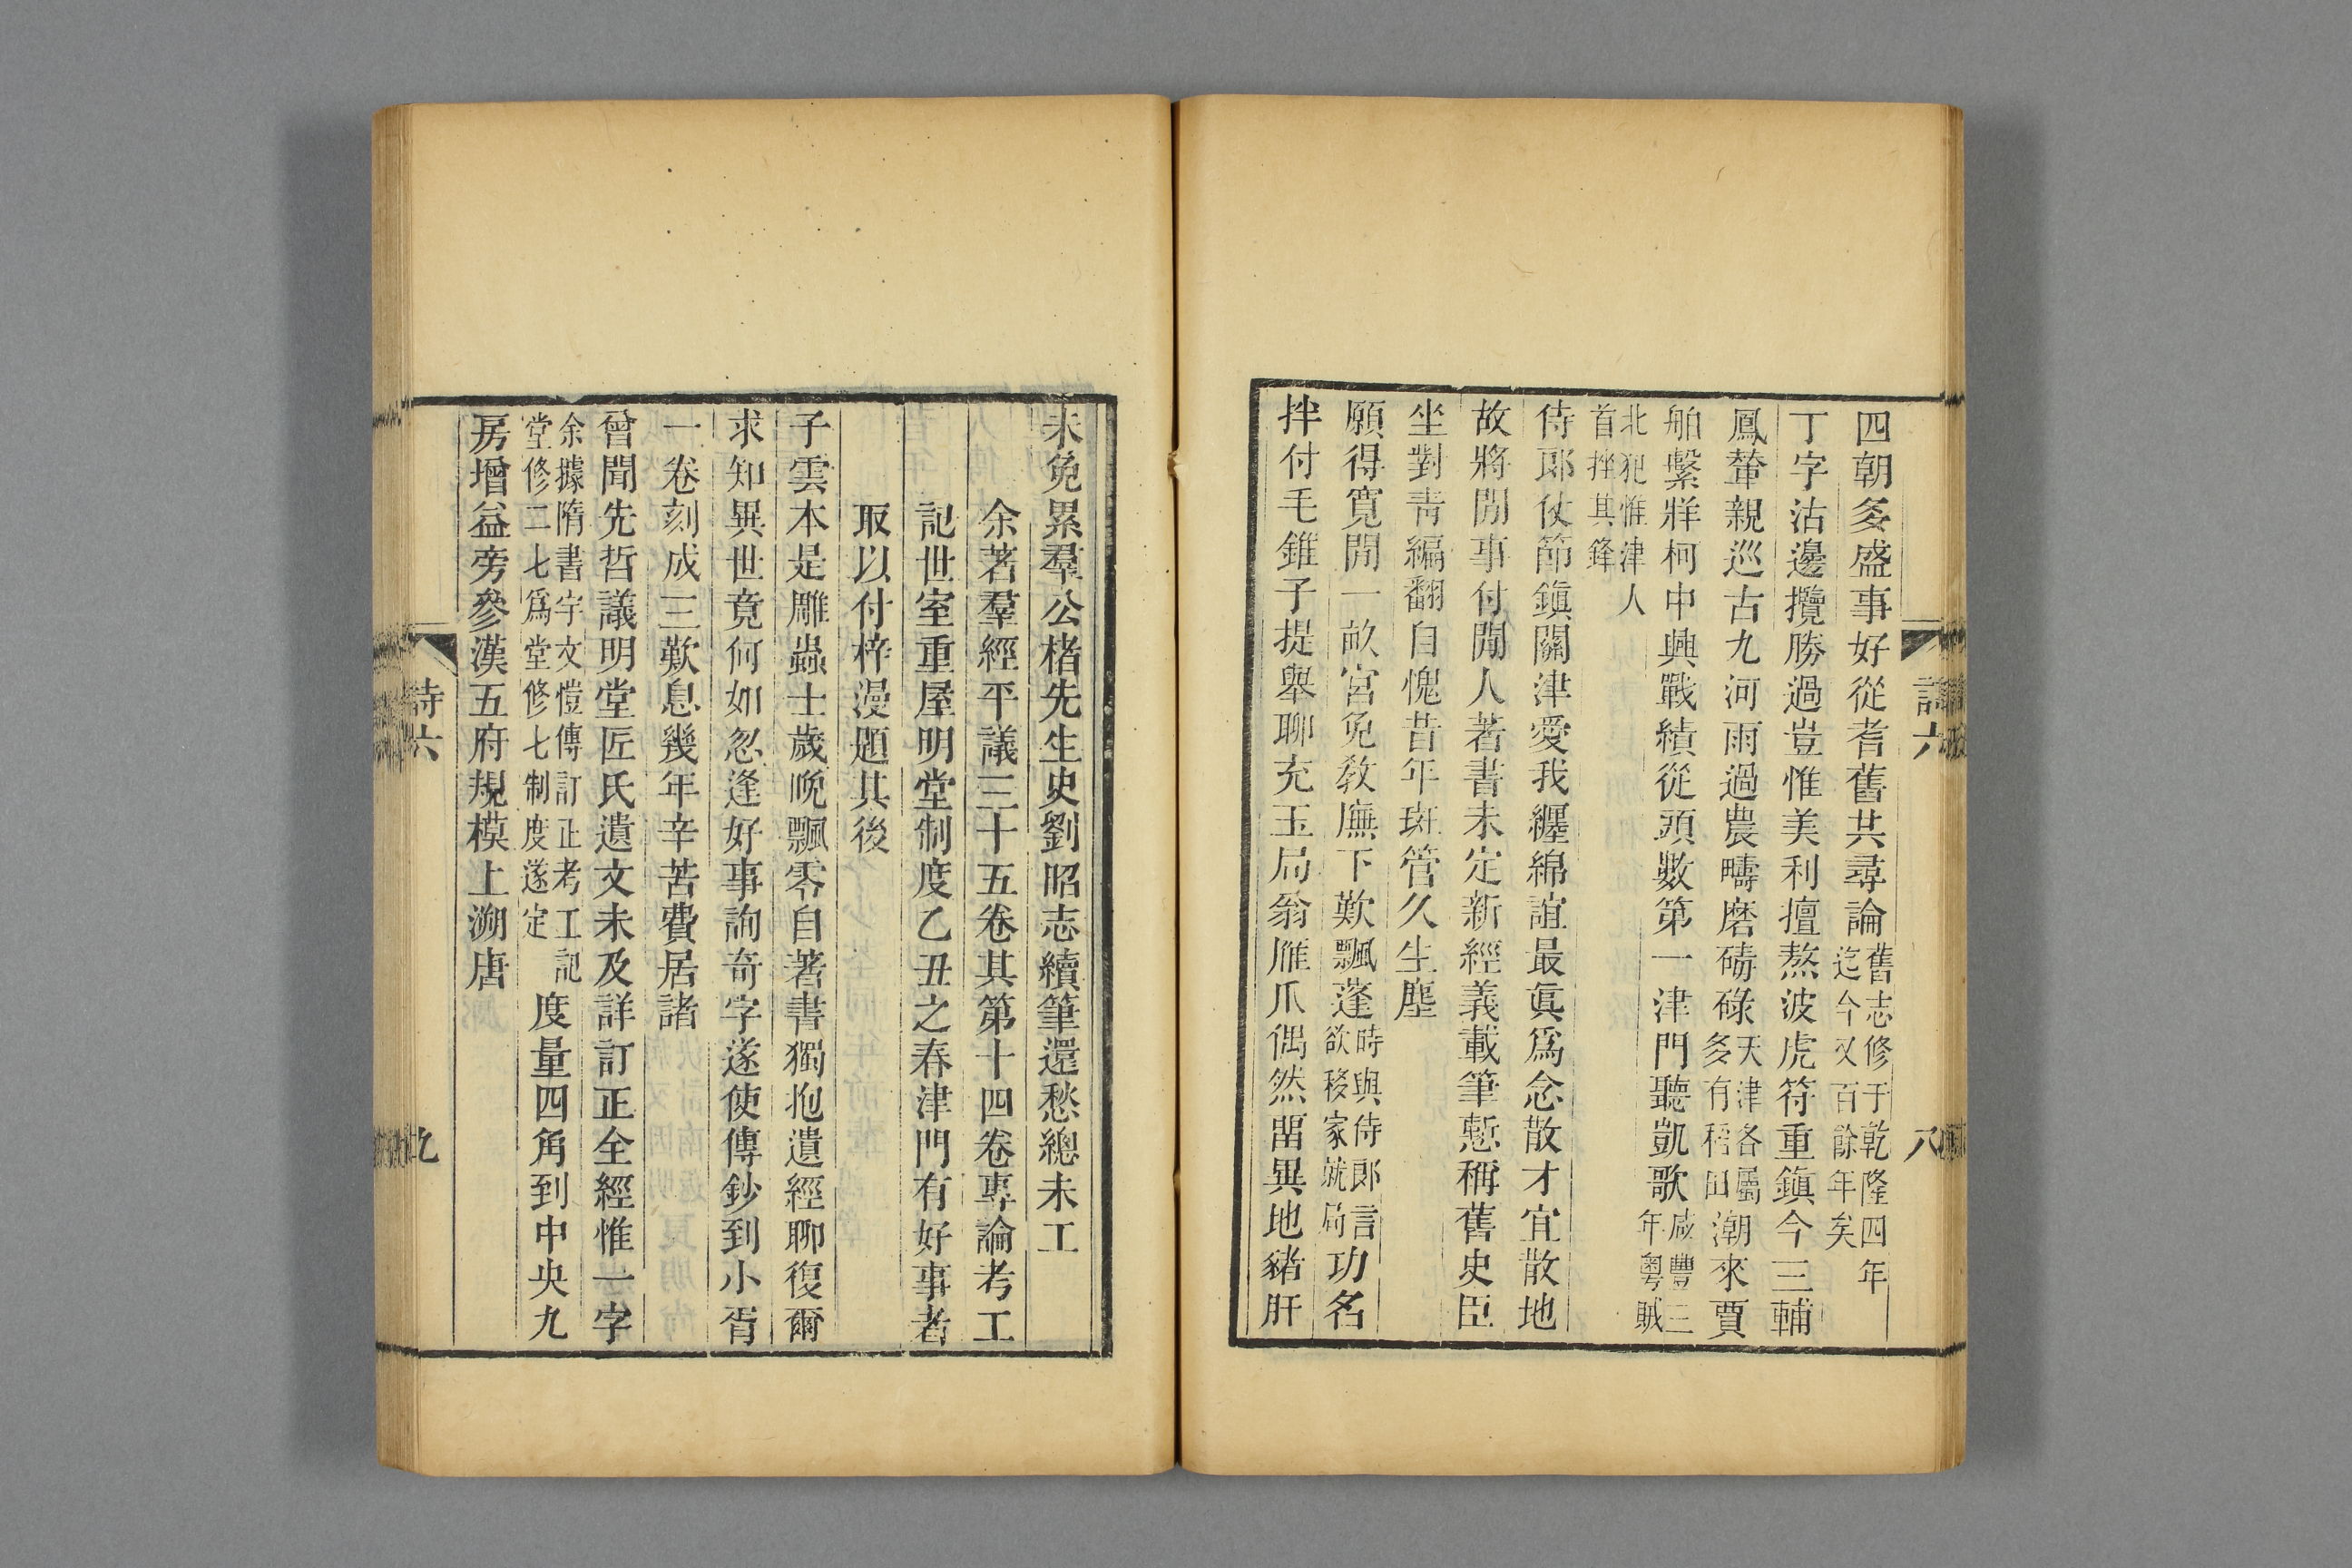 詩六
八
四朝多盛事好從耆舊共尋論舊志修于乾隆四年迄今又百餘年矣
丁字沽邊攬勝過豈惟美利擅熬波虎符重鎮今三輔
鳳輦親巡古九河雨過農疇磨磟碌天津各屬多有稻田潮來賈
舶繫牂柯中興戰績從頭數第一津門聽凱歌咸豐三年粵賊
北犯惟津人首挫其鋒
侍郎仗節鎮關津愛我纏綿誼最眞爲念散才宜散地
故將閒事付閒人著書未定新經義載筆慙稱舊史臣
坐對靑編翻自愧昔年斑管久生塵
願得寬閒一畝宮免敎廡下歎飄蓬時與侍郎言欲移家就局功名
拌付毛錐子提舉聊充玉局翁雁爪偶然留異地豬肝
未免累羣公楮先生史劉昭志續筆還愁總未工
余著羣經平議三十五卷其第十四卷專論考工
記世室重屋明堂制度乙丑之春津門有好事者
取以付梓漫題其後
子雲本是雕蟲士歲晚飄零自著書獨抱遺經聊復爾
求知異世竟何如忽逢好事詢奇字遂使傳鈔到小胥
一卷刻成三歎息幾年辛苦費居諸
曾聞先哲議明堂匠氏遺文未及詳訂正全經惟一字
余據隋書宇文愷傳訂正考工記堂修二七爲堂修七制度遂定度量四角到中央九
房增益旁參漢五府規模上溯唐
詩六
九